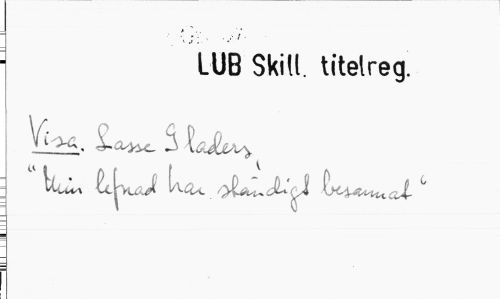 LUB Skill. titelreg.
Visa. Lasse Gladers,
"Min lefnad har ständigt besannat"